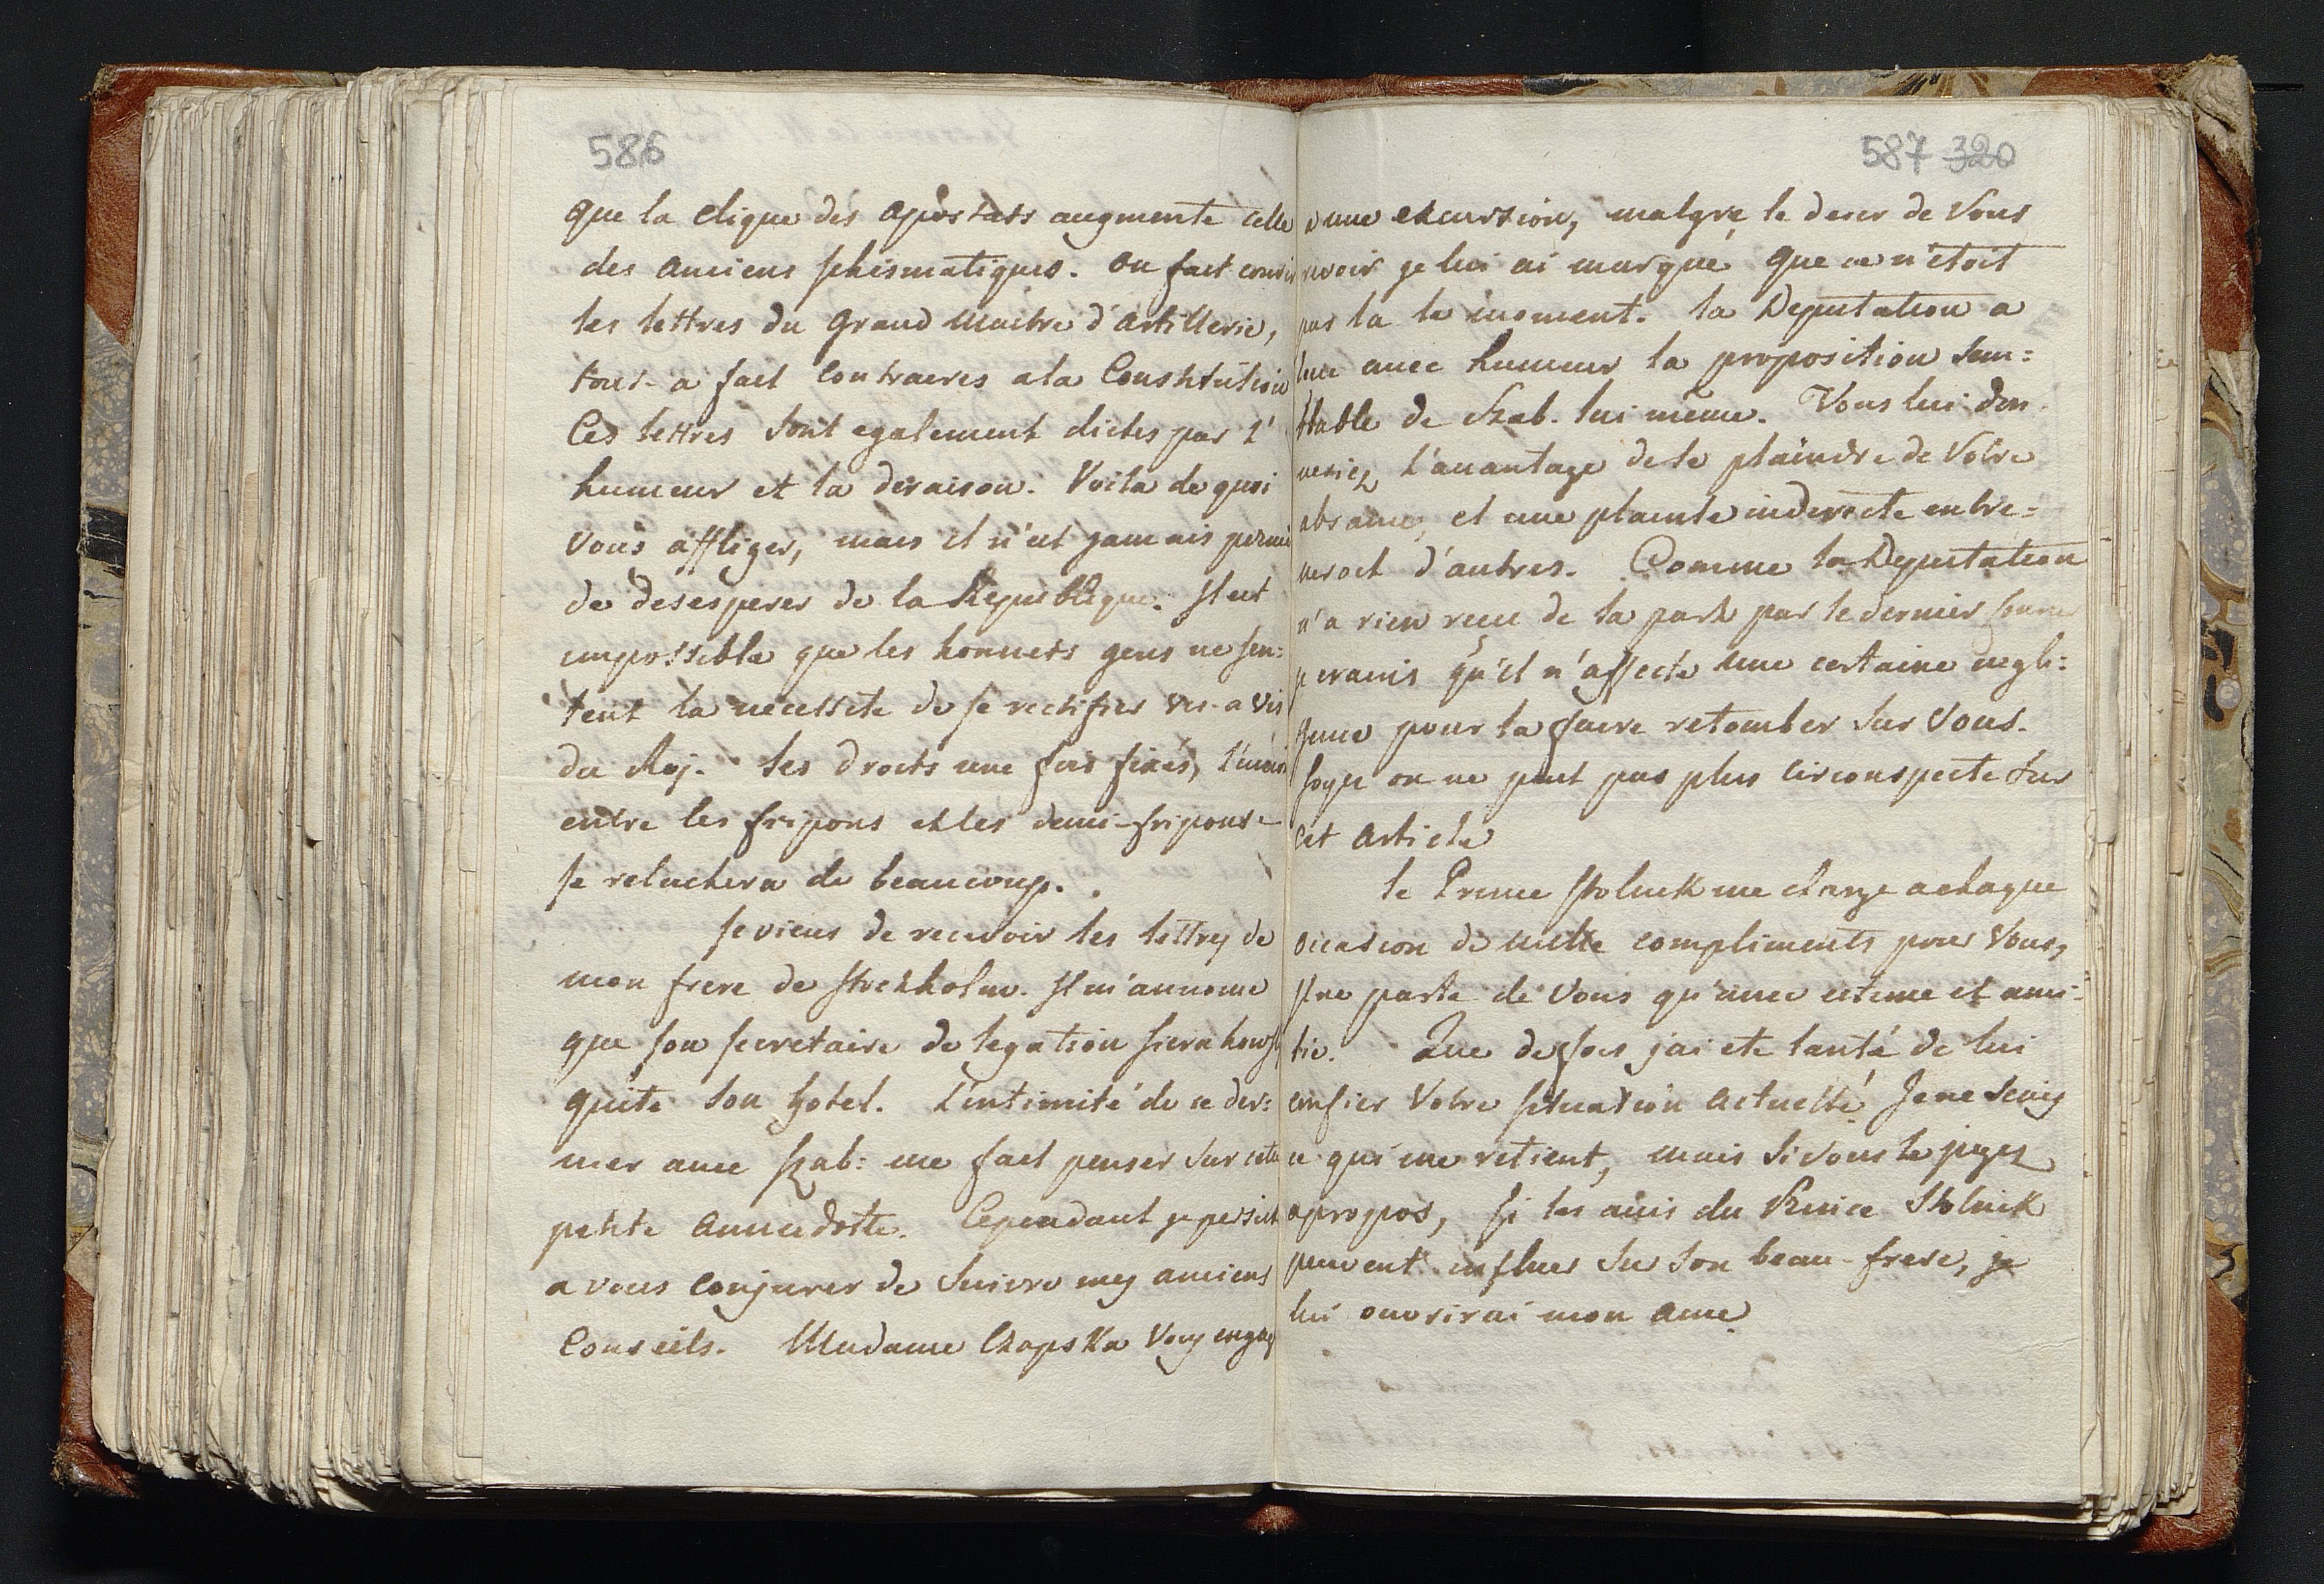 586
que la clique des apostats augmente celle
des anciens schismatiques. on fait courir
les lettres du Grand Maitre d'Artillerie,
tout-a fait contraires a la Constitution
Ces lettres sont egalement dictes par l'
humeur et la deraison. Voila de quoi
vous affliger, mais il n'est jamais permis
de desesperer de la Republique. Il est
impossible que les honnets gens ne sen:
tent la necessite de se rectifier vis-a vis
du Roj. Ses droits une fois fixés, l'union
entre les fripons et les demi-fripons
se relachera de beaucoup.
Je viens de recevoir les lettres de
mon frere de Stockholm. Il m'annonce
que son secretaire de legation Sierakowsk
quite son hotel. L'intimité de ce der:
nier avec Rzab: me fait penser sur cette
petite annecdotte. Cependant je persiste
a vous conjurer de suivre mes anciens
Conseils. Madame Czapska vous engage
587 320
a une excursion, malgré le desir de vous
revoir je lui ai marqué que ce n'étoit
pas la le moment. la Deputation a
lue avec humeur la proposition sem:
blable de Rzab. lui même. Vous lui don
neriez l'avantage de se plaindre de Votre
absence, et une plainte inderecte entre:
neroit d'autres. Comme la Deputation
n'a rien recu de sa part par le dernier
qu'il n'affecte une certaine negli:
gence pour la faire retomber sur vous.
soyez on ne peut pas plus circonspecte sur
cet article
le Prince Stolnik me charge a chaque
occasion de mille compliments pour vous,
Il ne parle de vous qu'avec estime et ami:
tie. Que de fois j'ai eté tanté de lui
confier Votre situation actuelle. Je ne scais
ce qui me retient, mais si vous le jugez
apropos, si les avis du Prince Stolnik
peuvent influer su son beau-frere, je
lui ouvrirai mon ame